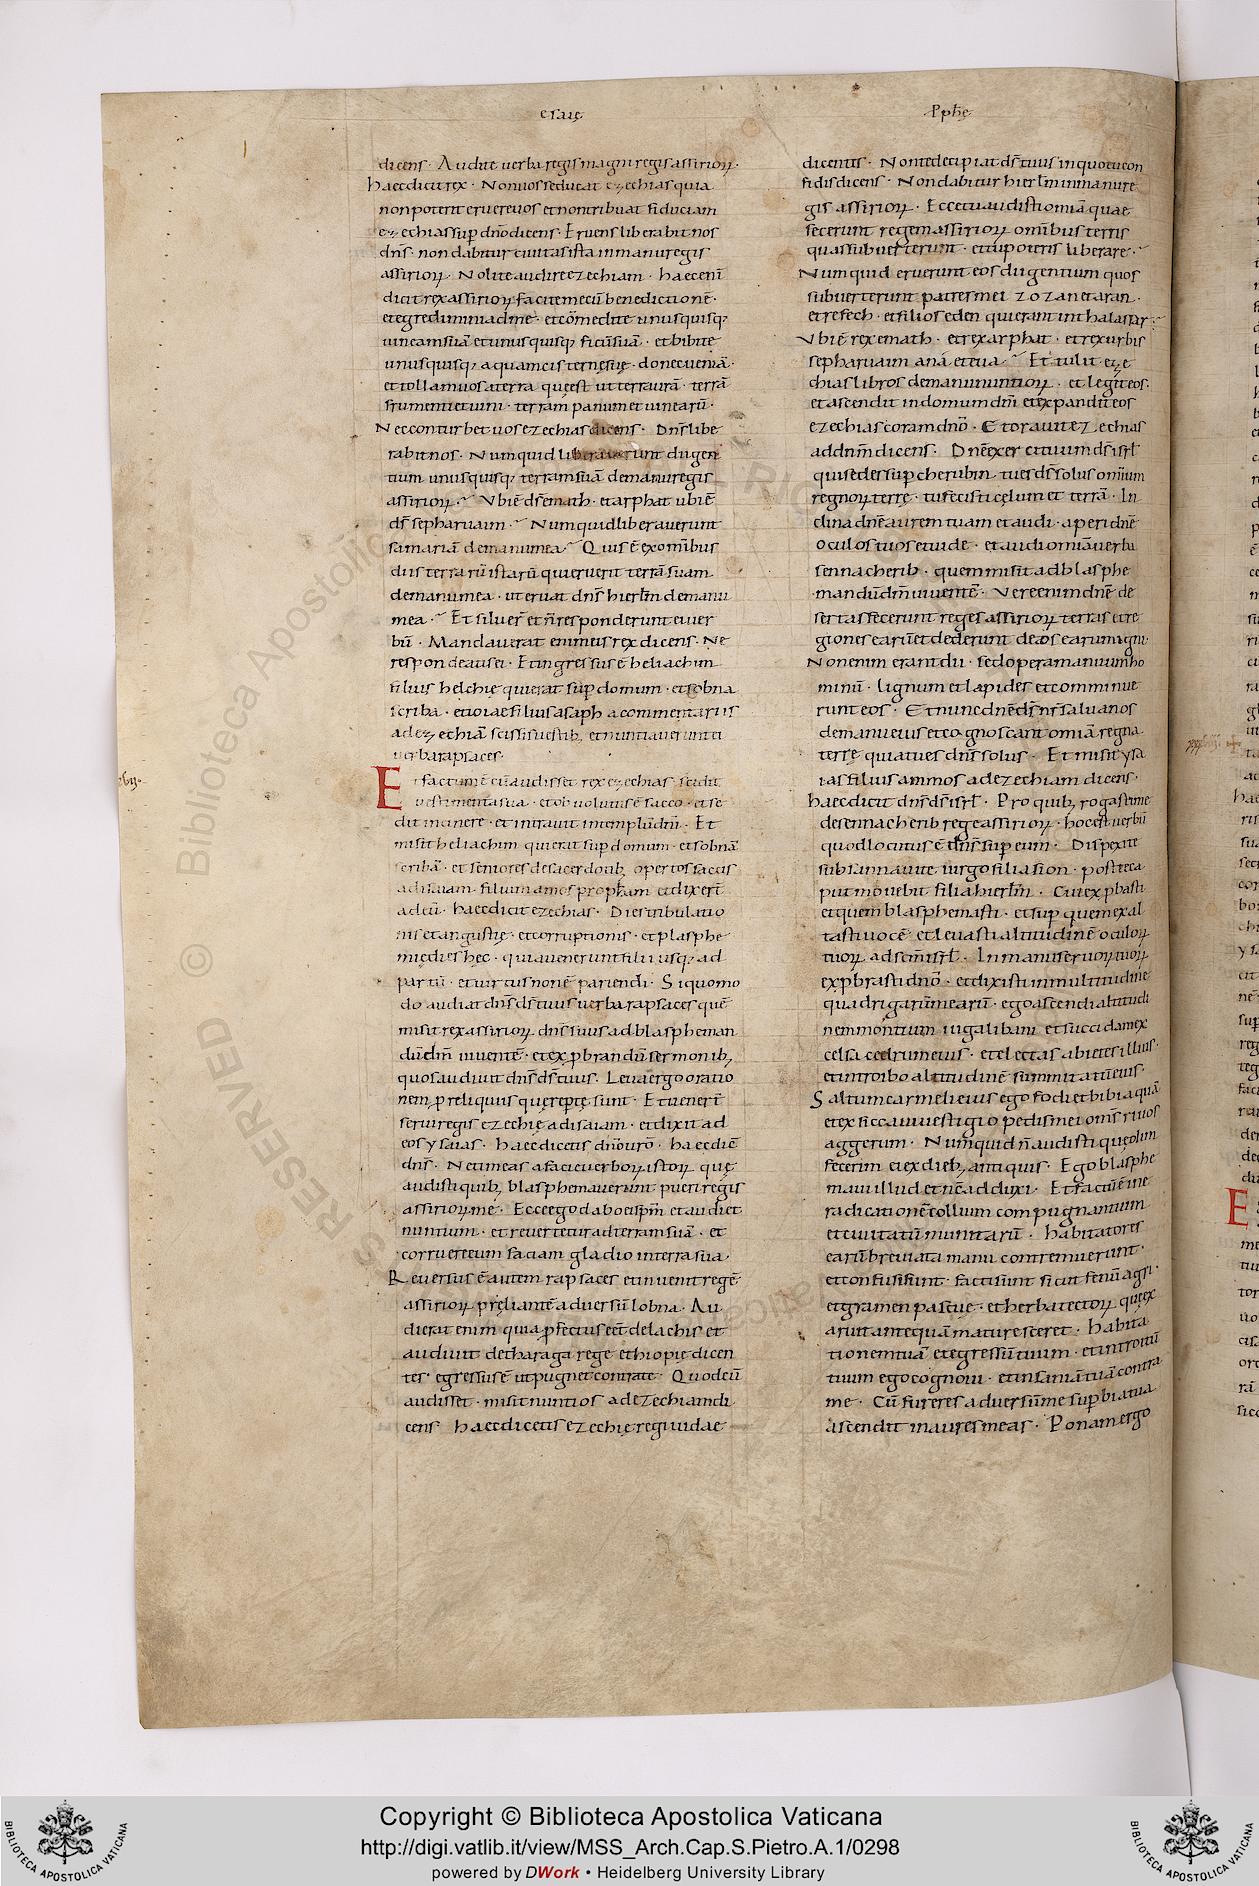 esaię
pphę
dicens · Audite uerba regis magni regis assirioꝝ ·
haec dicit rex · Non uos seducat ezechias quia
non poterit eruere uos et non tribuat fiduciam
ezechias sup̄ dn̄o dicens · Eruens liberabit nos
dn̄s · non dabitur ciuitas ista in manu regis
assirioꝝ · Nolite audire ezechiam · haec enī
dicit rex assirioꝝ facite mecū benedictionē ·
et egredimini ad me · et cōmedite unusquisq;
uineam suā et unusquisq; ficū suā · et bibite
unusquisq; aquam cisternę suę · donec ueniā ·
et tollam uos a terra quę est ut terra urā · terrā
frumenti et uini · terram panum et uinearū ·
Nec conturbet uos ezechias dicens · Dn̄s libe
rabit nos · Numquid liberauerunt dii gen
tium unusquisq; terram suā de manu regis
assirioꝝ · Vbi ē ds̄ emath · et arphat ubi ē
ds̄ sepharuaim · Numquid liberauerunt
samariā de manu mea · Quis ē ex omībus
diis terrarū istarū qui eruerit terrā suam
de manu mea · ut eruat dn̄s hierlm̄ de manu
mea · Et siluer̄ et n̄ responderunt ei uer
bū · Mandauerat enim eis rex dicens · Ne
respondeatis ei · Et ingressus ē heliachim
filius helchię qui erat sup̄ domum · et sobna
scriba · et ioiae filius asaph a commentariis
ad ezechiā scissis uestib; et nuntiauerunt ei
uerba rapsaces ·
Et factum ē cū audisset rex ezechias · scidit
uestimenta sua · et obuolutus ē sacco · et se
dit in cinere · et intrauit in templū dn̄i · Et
misit heliachim qui erat sup̄ domum · et sobnā
scribā · et seniores de sacerdotib; opertos saccis
ad isaiam · filium amos proph̄am et dixer̄t
ad eū · haec dicit ezechias · Dies tribulatio
nis et angustię · et corruptionis · et plasphe
mię dies hęc · quia uenerunt filii usq; ad
partū · et uirtus non ē pariendi · Si quomo
do audiat dn̄s ds̄ tuus uerba rapsaces quē
misit rex assirioꝝ dn̄s suus ad blaspheman
dū dm̄ uiuentē · et exp̄brandū sermonib;
quos audiuit dn̄s ds̄ tuus · Leua ergo oratio
nem p̄ reliquiis quę reptę sunt · Et uener̄t
serui regis ezechię ad isaiam · et dixit ad
eos ysaias · haec dicetis dn̄o urō · haec diē
dn̄s · Ne timeas a facie uerboꝝ istoꝝ quę
audisti quib; blasphemauerunt pueri regis
assirioꝝ me · Ecce ego dabo ei sp̄m et audiet
nuntium · et reuertetur ad terram suā · et
corruere eum faciam gladio in terra sua ·
Reuersus ē autem rapsaces et inuenit regē
assirioꝝ pręliantē aduersū lobna · Au
dierat enim quia p̄fectus eēt de lachis et
audiuit de tharaga rege ethiopię dicen
tes · egressus ē ut pugnet contra te · Quod cū
audisset · misit nuntios ad ezechiam di
cens · haec dicetis ezechię regi iudae
dicentes · Non te decipiat ds̄ tuus in quo tu con
fidis dicens · Non dabitur hierlm̄ in manu re
gis assirioꝝ · Ecce tu audisti omia quae
fecerunt regem assirioꝝ omībus terris
quas subuerterunt · et tu poteris liberare ·
Numquid eruerunt eos dii gentium quos
subuerterunt patres mei zozan et aran ·
et refech · et filios eden qui erant in thalassar ·
Vbi ē rex emath · et rex arphat · et rex urbis
sepharuaim ana et eua · Et tulit eze
chias libros de manu nuntioꝝ · et legit eos ·
et ascendit in domum dn̄i et expandit eos
ezechias coram dn̄o · Et orauit ezechias
ad dn̄m dicens · Dn̄e exercituum ds̄ isrl̄
qui sedes sup̄ cherubin · tu es ds̄ solus omium
regnoꝝ terrę · tu fecisti cęlum et terrā · In
clina dn̄e aurem tuam et audi · aperi dn̄e
oculos tuos et uide · et audi omia uerba
sennacherib · quem misit ad blasphe
mandū dm̄ uiuentē · Vere enim dn̄e de
serta fecerunt reges assirioꝝ terras et re
giones earū et dederunt deos earum igni ·
Non enim erant dii · sed opera manuum ho
minū · lignum et lapides et comminue
runt eos · Et nunc dn̄e ds̄ nr̄ salua nos
de manu eius et cognoscant omia regna
terrę quia tu es dn̄s solus · Et misit ysa
ias filius ammos ad ezechiam dicens ·
haec dicit dn̄s ds̄ isrl̄ · Pro quib; rogasti me
de sennacherib rege assirioꝝ · hoc est uerbū
quod locutus ē dn̄s sup̄ eum · Dispexit te
subsannauit te uirgo filia sion · post te ca
put mouebit filia hierlm̄ · Cui exp̄basti
et quem blasphemasti · et sup̄ quem exal
tasti uocē · et leuasti altitudinē oculoꝝ
tuoꝝ ad sc̄m isrl̄ · In manu seruoꝝ tuoꝝ
exp̄brasti dn̄o · et dixisti in multitudine
quadrigarū mearū · ego ascendi altitudi
nem montium iuga libani et succidam ex
celsa cedrum eius · et electas abietes illius ·
et introibo altitudinē summitatū eius ·
Saltum carmeli eius ego fodi et bibi aquā
et exsiccaui uestigio pedis mei om̄s riuos
aggerum · Numquid n̄ audisti que olim
fecerim ei ex dieb; antiquis · Ego blasphe
maui illud et nē adduxi · Et factū ē in e
radicationē collium compugnantium
et ciuitatū munitarū · habitatores
earū breuiata manu contremuerunt ·
et confusi sunt · facti sunt sicut fenū agri ·
et gramen pascuę · et herba tectoꝝ quę ex
aruit antequā maturesceret · habita
tionem tuā et egressū tuum · et introitū
tuum ego cognoui · et insaniā tuā contra
me · Cū fureres aduersū me superbia tua
ascendit in aures meas · Ponam ergo
Copyright © Biblioteca Apostolica Vaticana
http://digi.vatlib.it/view/MSS_Arch.Cap.S.Pietro.A.1/0298
powered by DWork • Heidelberg University Library